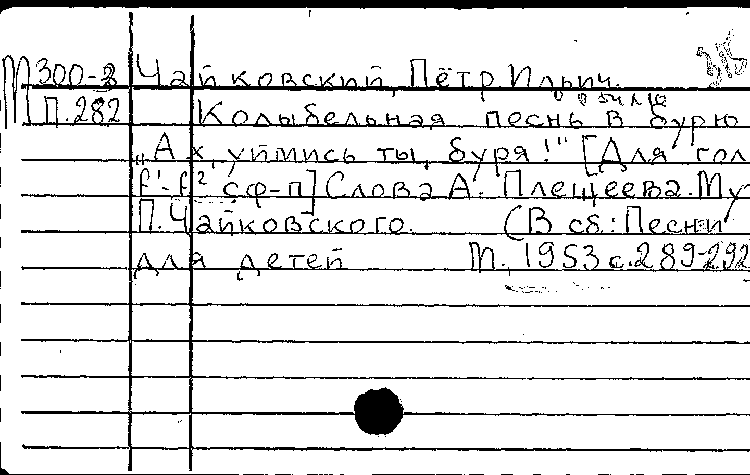 М300-3 Чайковский, Пётр Ильич.
М П.282 Колыбельная песнь в бурю
„Ах, уймись ты, буря!" [Для гол
f¹-f² с ф-п] Слова А. Плещеева. Му
П. Чайковского. (В сб.: Песни
для детей М., 1953 с. 289-292